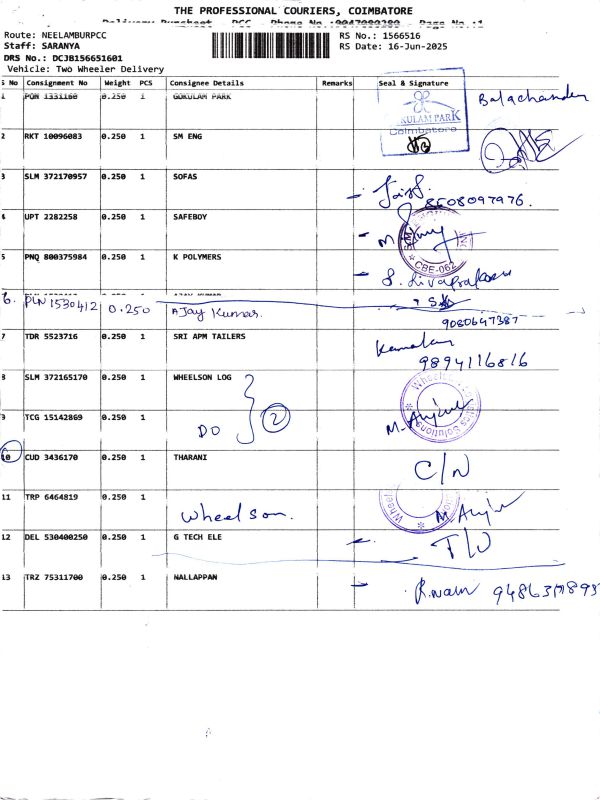 THE PROFESSIONAL COURIERS, COIMBATORE
Delivery Runsheet - PCC - Phone No.:0047980380 - Page No.:1
Route: NEELAMBURPCC
Staff: SARANYA
DRS No.: DCJB156651601
Vehicle: Two Wheeler Delivery
RS No.: 1566516
RS Date: 16-Jun-2025
S No Consignment No Weight PCS Consignee Details Remarks Seal & Signature
1 PON 1331160 0.250 1 GOKULAM PARK
GOKULAM PARK
Coimbatore
Balachander
2 RKT 10096083 0.250 1 SM ENG
3 SLM 372170957 0.250 1 SOFAS
8608097976.
4 UPT 2282258 0.250 1 SAFEBOY
CBE-062
5 PNQ 800375984 0.250 1 K POLYMERS
S. Sivaprakasam
6. PLN 1530412 0.250 AJay Kumar.
9080647387
7 TDR 5523716 0.250 1 SRI APM TAILERS
9894116816
8 SLM 372165170 0.250 1 WHEELSON LOG
9 TCG 15142869 0.250 1
DO 2
10 CUD 3436170 0.250 1 THARANI
C/N
11 TRP 6464819 0.250 1
Wheelson.
12 DEL 530400250 0.250 1 G TECH ELE
13 TRZ 75311700 0.250 1 NALLAPPAN